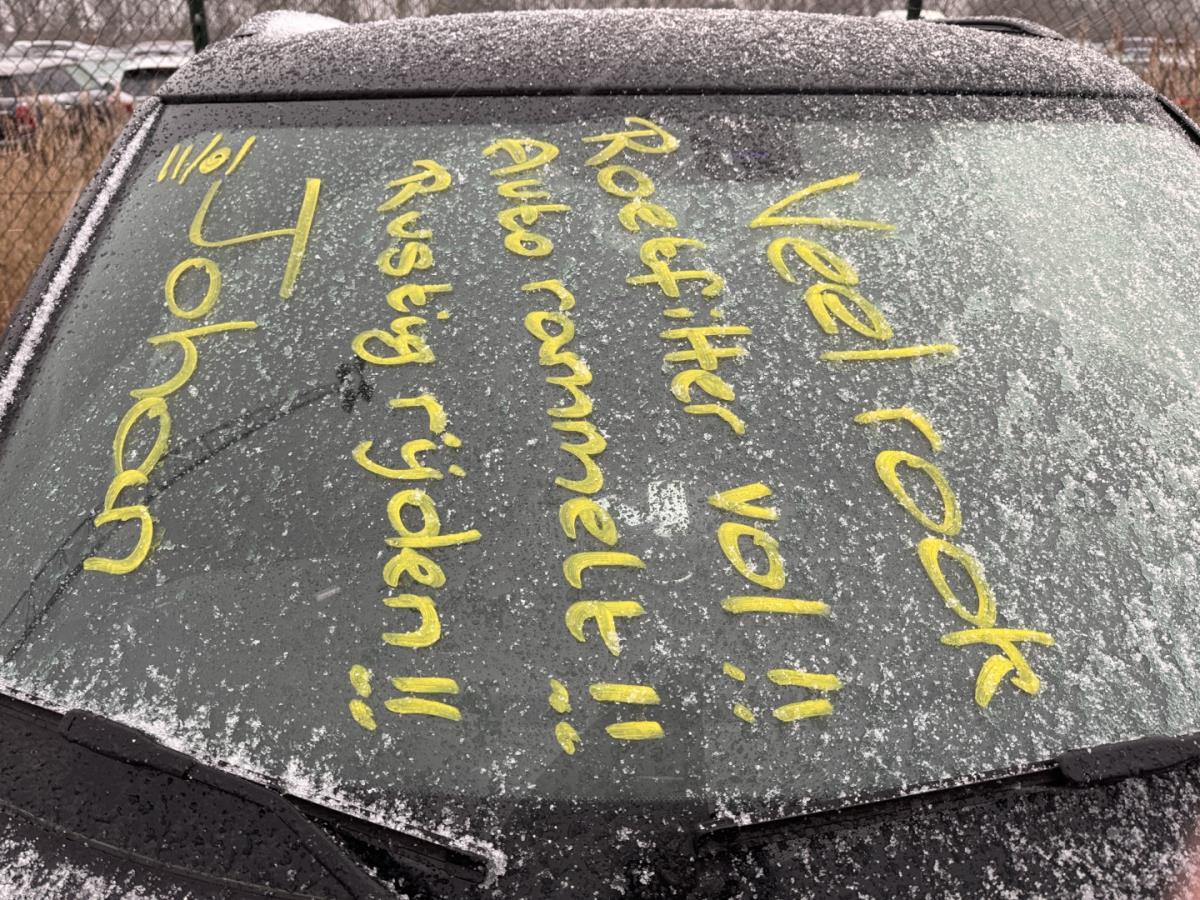 Veel rook
Roetfilter vol!!
Auto rammelt!!
Rustig rijden!!
Johan
11/01